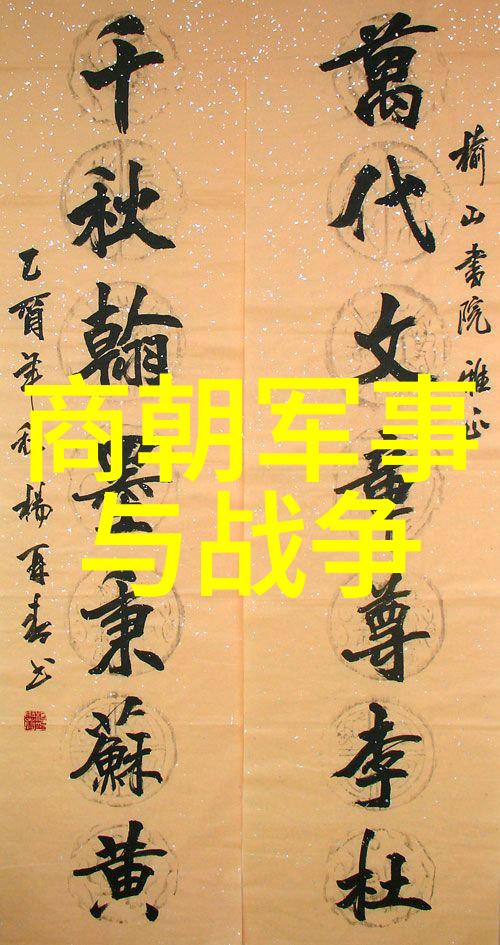 榆山書院雅正
萬代文章尊李杜
千秋翰墨秉蘇黄
乙酉年秋楊再春书
商朝军事
与战争